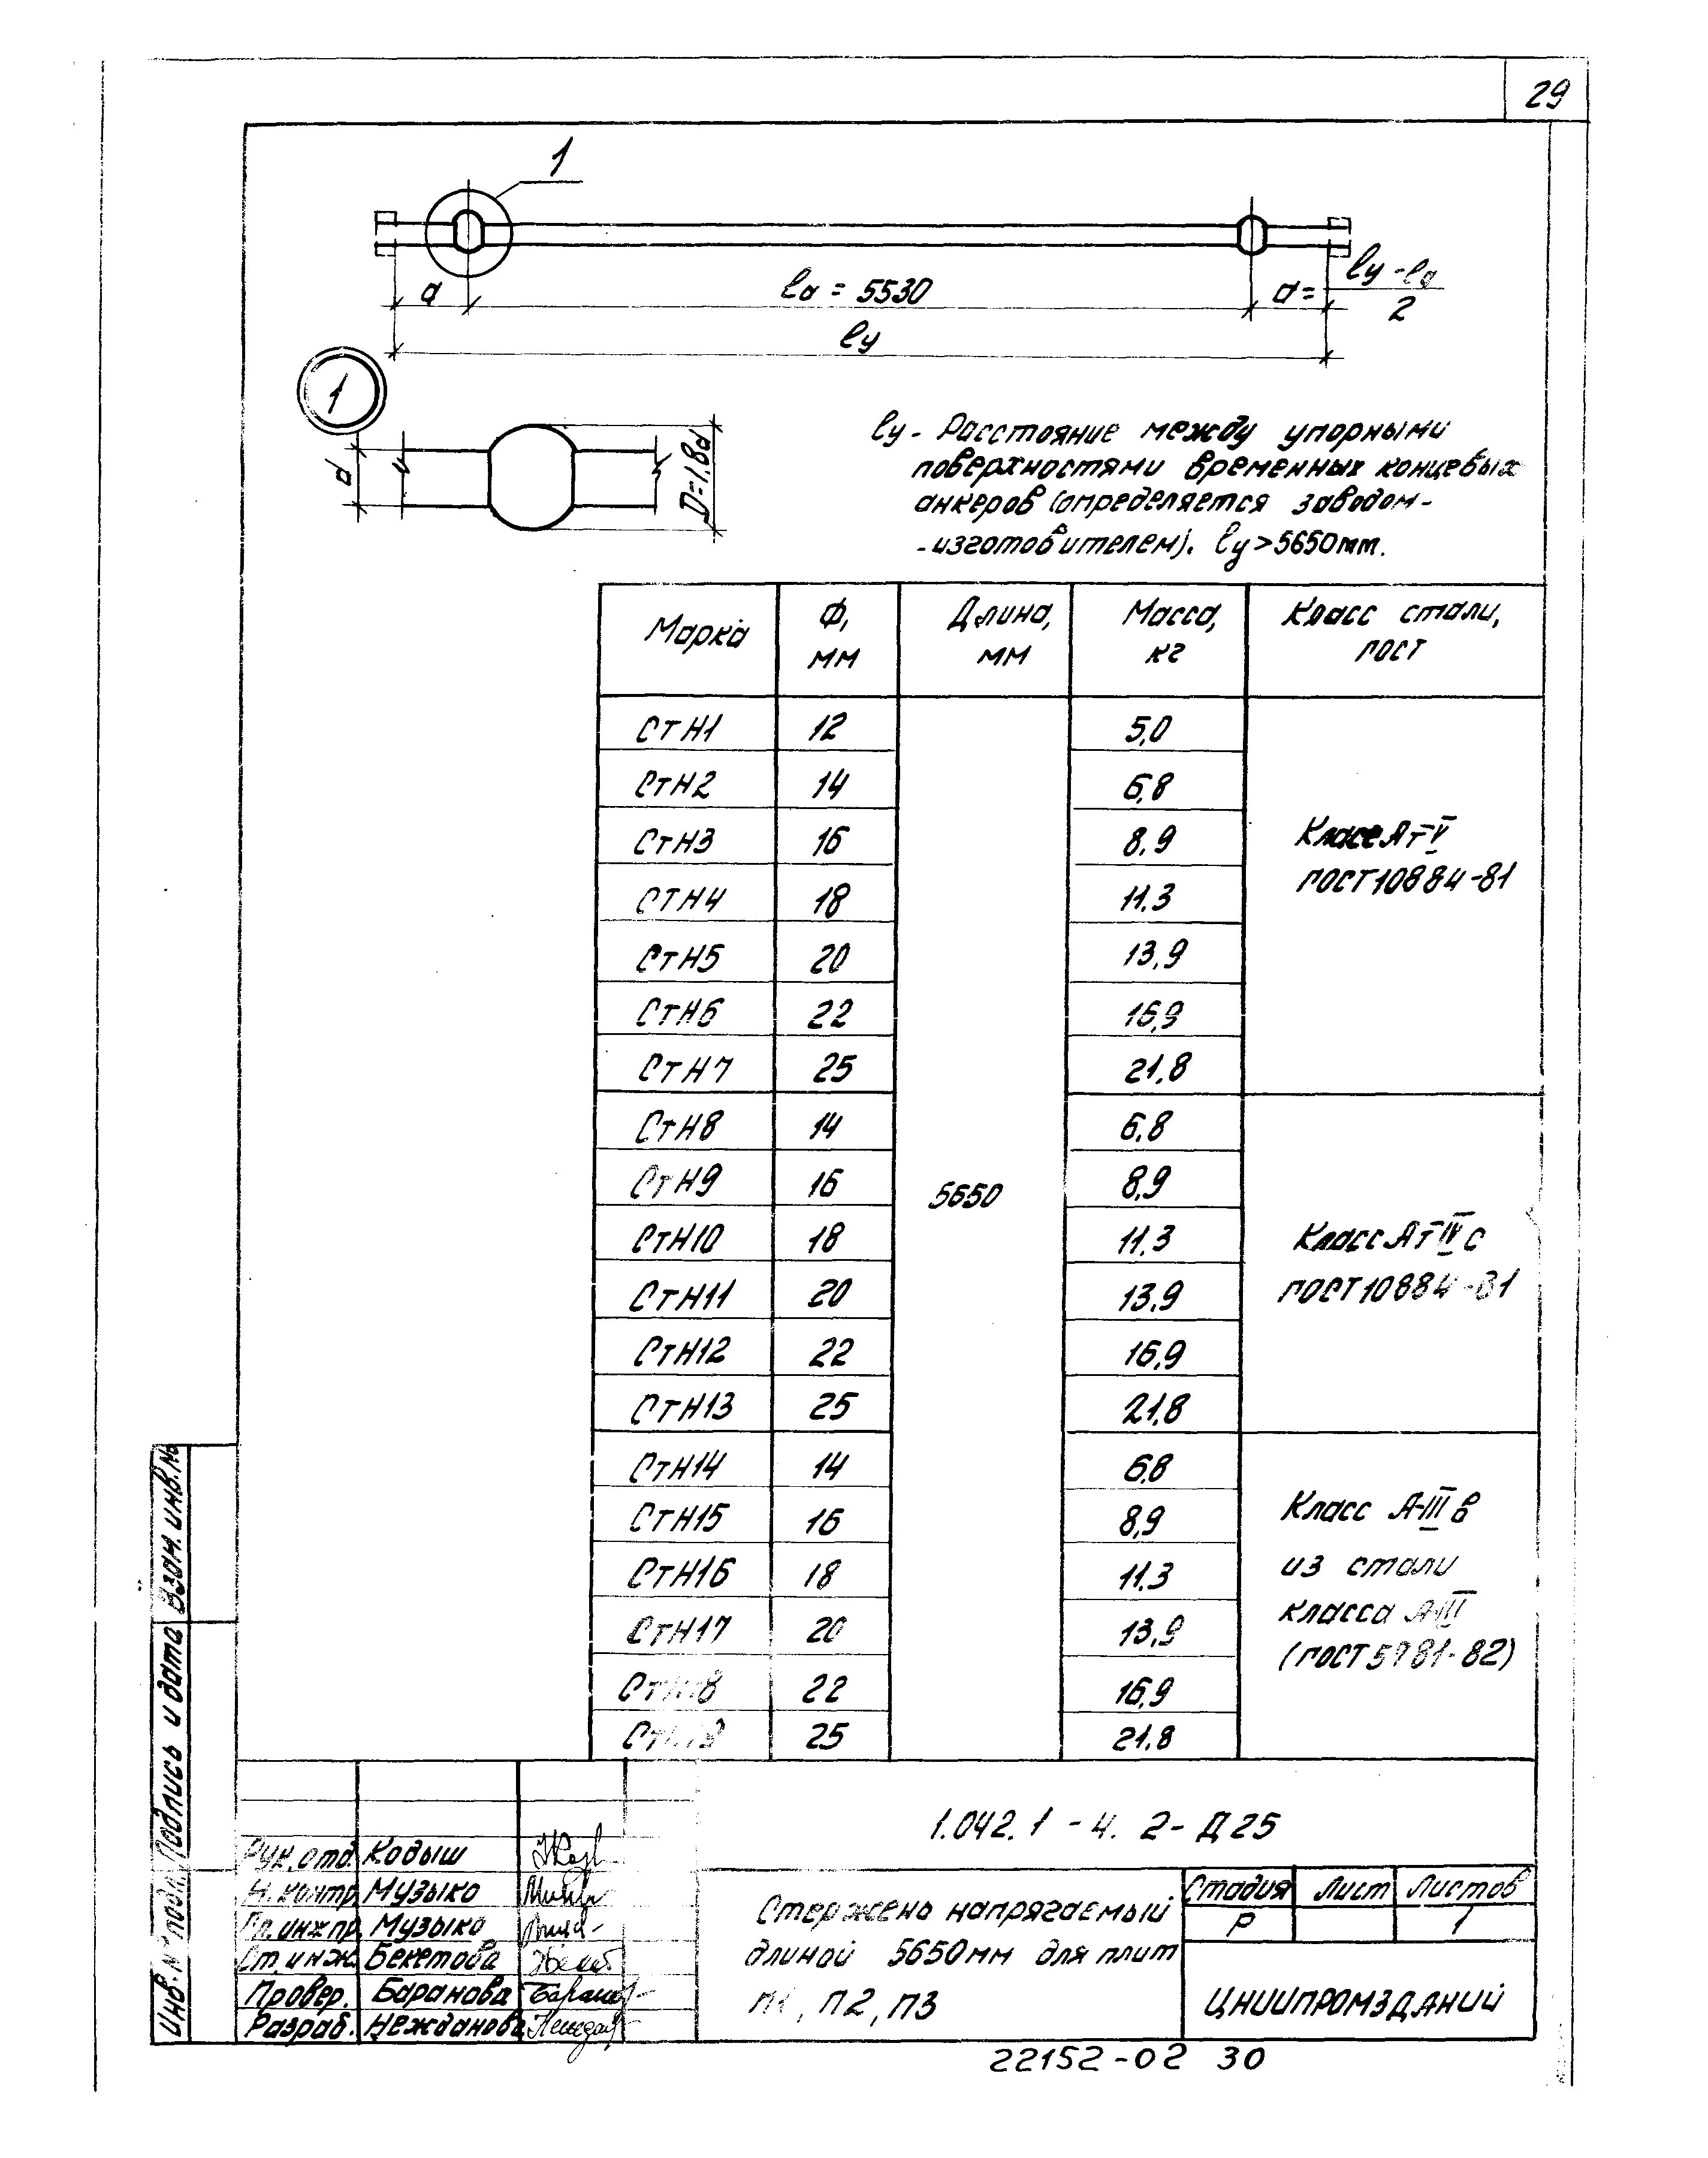 29
1
a
lo = 5530
a = ly - lo / 2
ly
1
d
D=1,8d
ly - Расстояние между упорными
поверхностями временных концевых
анкеров (определяется заводом-
-изготовителем). ly > 5650мм.
Марка Ф, мм Длина, мм Масса, кг Класс стали, ГОСТ
СтН1 12 5,0
СтН2 14 6,8
СтН3 16 8,9
СтН4 18 11,3
СтН5 20 13,9
СтН6 22 16,9
СтН7 25 21,8
Класс Ат-V
ГОСТ 10884-81
СтН8 14 6,8
СтН9 16 8,9
СтН10 18 11,3
СтН11 20 13,9
СтН12 22 16,9
СтН13 25 21,8
5650
Класс Ат-IVс
ГОСТ 10884-81
СтН14 14 6,8
СтН15 16 8,9
СтН16 18 11,3
СтН17 20 13,9
СтН18 22 16,9
СтН19 25 21,8
Класс А-IIIв
из стали
класса А-III
(ГОСТ 5781-82)
Взам. инв. №
Подпись и дата
Инв. № подл.
1.042.1-4. 2-Д25
Рук. отд. Кодыш
Н. контр. Музыко
Гл. инж. пр. Музыко
Ст. инж. Бекетова
Провер. Баранова
Разраб. Нежданова
Стержень напрягаемый
длиной 5650мм для плит
П1, П2, П3
Стадия Лист Листов
Р 1
ЦНИИПРОМЗДАНИЙ
22152-02 30